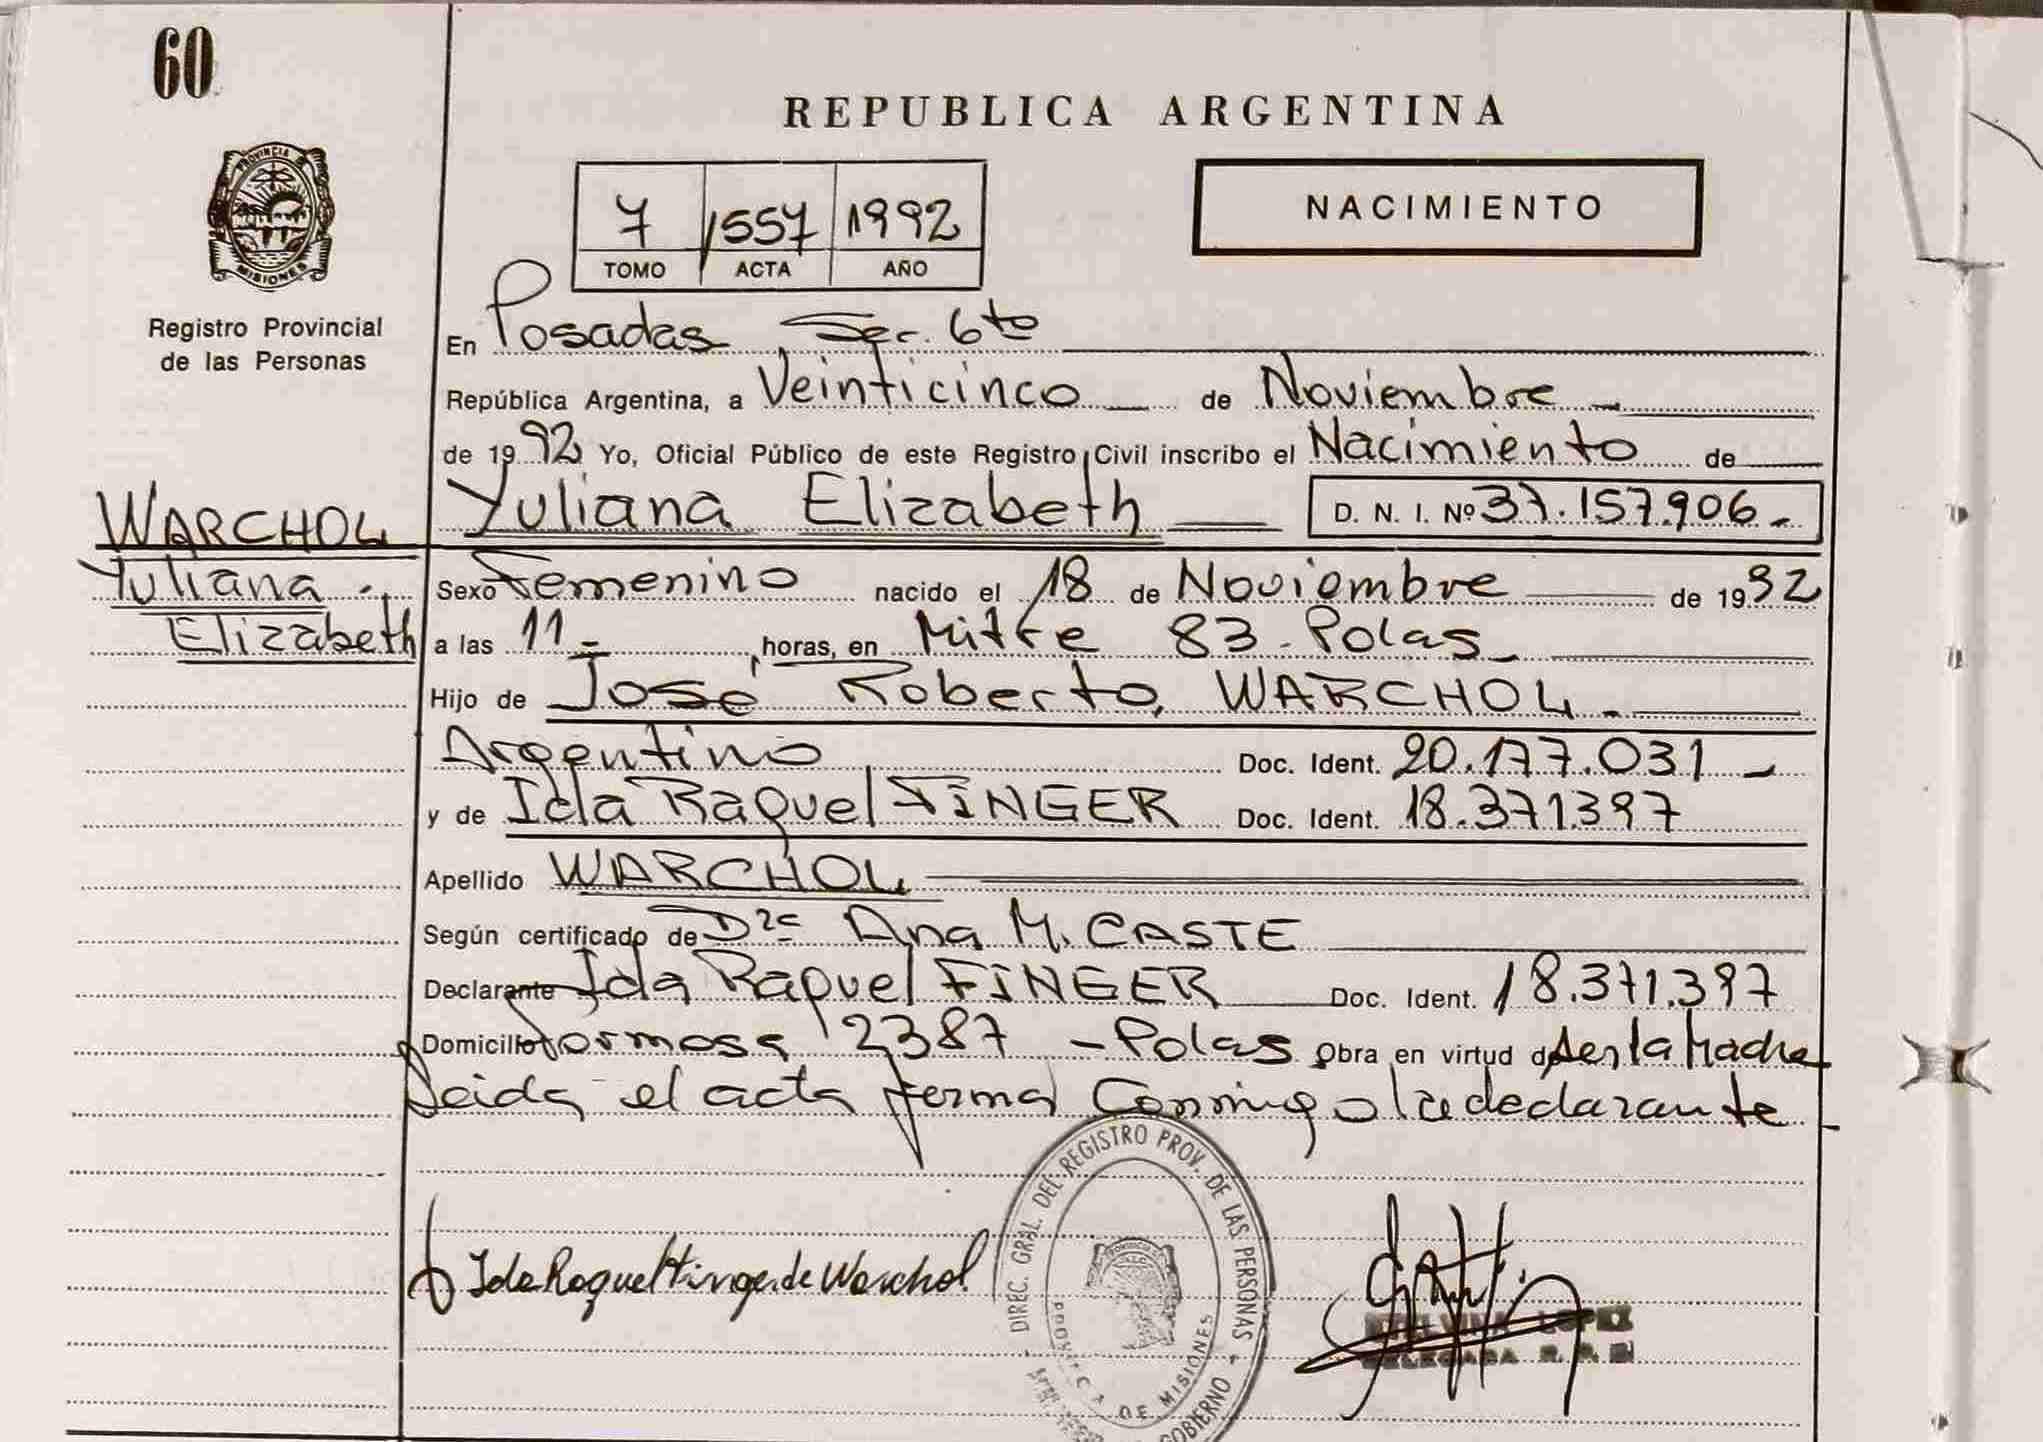 60
REPUBLICA ARGENTINA
PROVINCIA DE
MISIONES
Registro Provincial
de las Personas
7 1557 1992
TOMO ACTA AÑO
NACIMIENTO
En Posadas, Sec. 6to
República Argentina, a Veinticinco de Noviembre
de 1992 Yo, Oficial Público de este Registro Civil inscribo el Nacimiento de
Yuliana Elizabeth D. N. I. Nº 37.157.906.-
WARCHOL
Yuliana
Elizabeth
Sexo Femenino nacido el 18 de Noviembre de 1992
a las 11.- horas, en Mitre 83-Pdas
Hijo de José Roberto, WARCHOL.-
Argentino Doc. Ident. 20.177.031-
y de Ida Raquel FINGER Doc. Ident. 18.371.397
Apellido WARCHOL
Según certificado de Dra Ana M. CASTE
Declarante Ida Raquel FINGER Doc. Ident. 18.371.397
Domicilio Formosa 2387 - Pdas Obra en virtud de ser la Madre
Leida el acta firma Conmigo la declarante
Ida Raquel Finger de Warchol
DIREC. GRAL. DEL REGISTRO PROV. DE LAS PERSONAS
PROVINCIA DE MISIONES
GOBIERNO
LOPEZ
DELEGADA R. P.